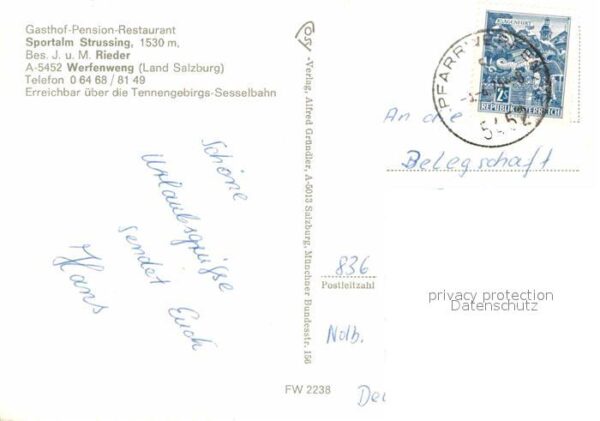 Gasthof-Pension-Restaurant
Sportalm Strussing, 1530 m,
Bes. J. u. M. Rieder
A-5452 Werfenweng (Land Salzburg)
Telefon 0 64 68 / 81 49
Erreichbar über die Tennengebirgs-Sesselbahn
Schöne
Urlaubsgrüsse
sendet Euch
Hans
-Verlag, Alfred Gründler, A-5013 Salzburg, Münchner Bundesstr. 156
KLAGENFURT
2S
REPUBLIK ÖSTERREICH
PFARRWERFEN
5452
An die
Belegschaft
836
Postleitzahl
privacy protection
Datenschutz
Nolb.
FW 2238